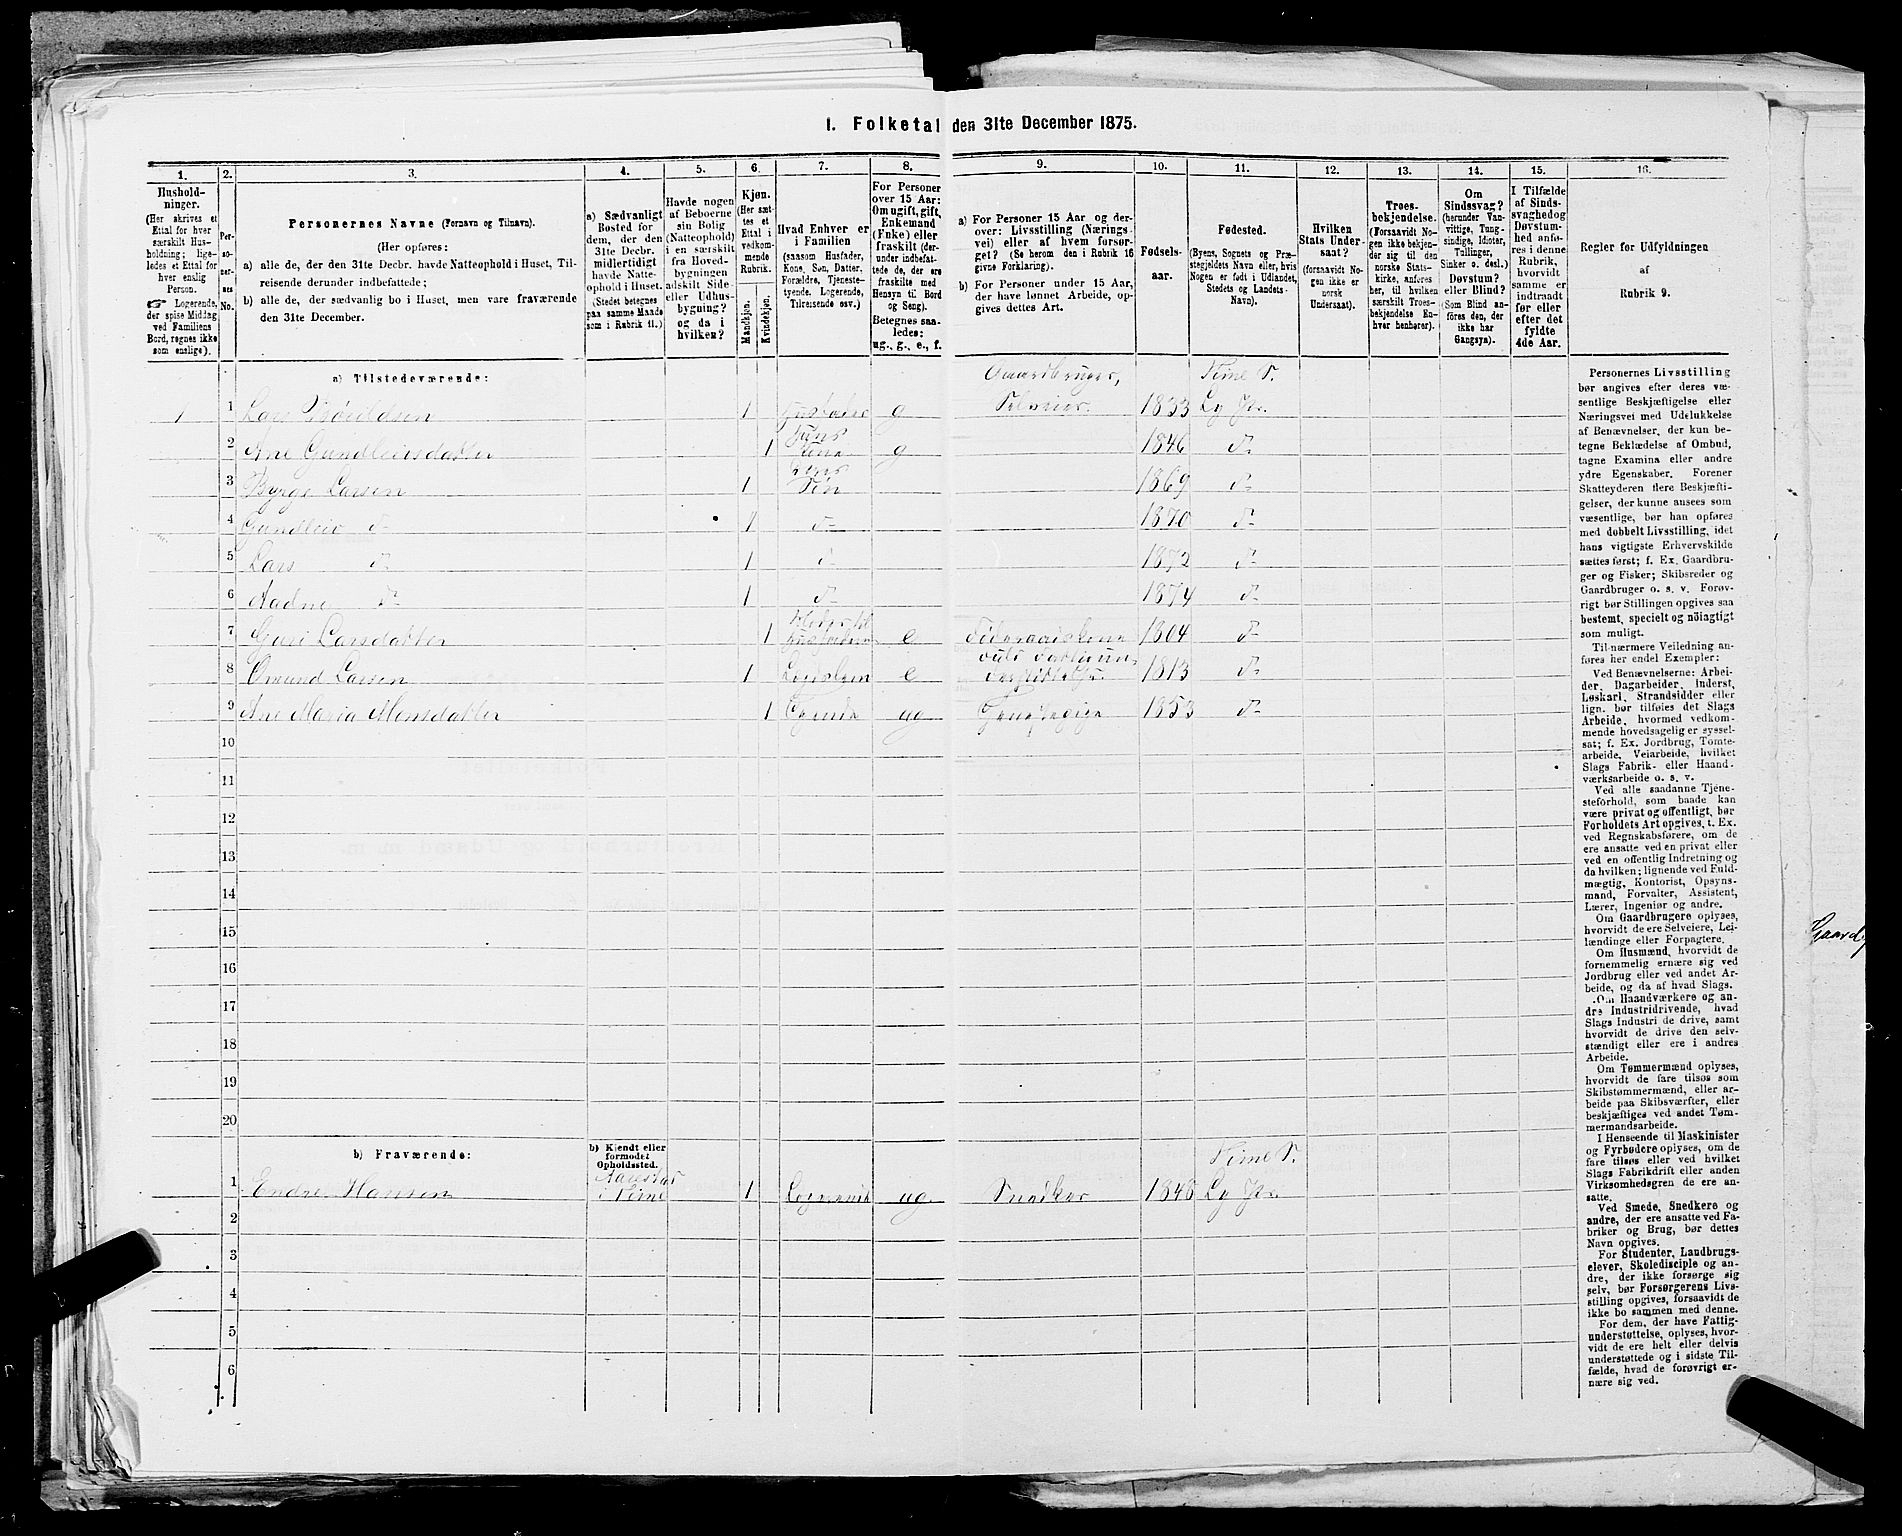 I. Folketal den 31te December 1875.
1. 2. 3. 4. 5. 6. 7. 8. 9. 10. 11. 12. 13. 14. 15. 16.
Hushold-
ninger.
(Her skrives et
Ettal for hver
særskilt Hus-
holdning; lige-
ledes et Ettal for
hver enslig
Person.
☞ Logerende,
der spise Middag
ved Familiens
Bord, regnes ikke
som enslige).
Per-
soner-
nes
No.
Personernes Navne (Fornavn og Tilnavn).
(Her opføres:
a) alle de, der den 31te Decbr. havde Natteophold i Huset, Til-
reisende derunder indbefattede;
b) alle de, der sædvanlig bo i Huset, men vare fraværende
den 31te December.
a) Sædvanligt
Bosted for
dem, der den
31te Decbr.
midlertidigt
havde Natte-
ophold i Huset.
(Stedet betegnes
paa samme Maade
som i Rubrik 11.)
Havde nogen
af Beboerne
sin Bolig
(Natteophold)
i en særskilt
fra Hoved-
bygningen
adskilt Side-
eller Udhus-
bygning?
og da i
hvilken?
Kjøn.
(Her sæt-
tes et
Ettal i
vedkom-
mende
Rubrik.
Mandkjøn.
Kvindekjøn.
Hvad Enhver er
i Familien
(saasom Husfader,
Kone, Søn, Datter,
Forældre, Tjeneste-
tyende, Logerende,
Tilreisende osv.)
For Personer
over 15 Aar:
Om ugift, gift,
Enkemand
(Enke) eller
fraskilt (der-
under indbefat-
tede de, der ere
fraskilte med
Hensyn til Bord
og Seng).
Betegnes saa-
ledes:
ug., g., e., f.
a) For Personer 15 Aar og der-
over: Livsstilling (Nærings-
vei) eller af hvem forsør-
get? (Se herom den i Rubrik 16
givne Forklaring).
b) For Personer under 15 Aar,
der have lønnet Arbeide, op-
gives dettes Art.
Fødsels-
aar.
Fødested.
(Byens, Sognets og Præ-
stegjeldets Navn eller, hvis
Nogen er født i Udlandet,
Stedets og Landets
Navn).
Hvilken
Stats Under-
saat?
(forsaavidt No-
gen ikke er
norsk
Undersaat).
Troes-
bekjendelse.
(Forsaavidt No-
gen ikke bekjen-
der sig til den
norske Stats-
kirke, anføres
her, til hvilken
særskilt Troes-
bekjendelse En-
hver henhører).
Om
Sindssvag?
(herunder Van-
vittige, Tung-
sindige, Idioter,
Tullinger,
Sinker o. desl.)
Døvstum?
eller Blind?
(Som Blind an-
føres den, der
ikke har
Gangsyn).
I Tilfælde
af Sinds-
svaghed og
Døvstum-
hed anfø-
res i denne
Rubrik,
hvorvidt
samme er
indtraadt
før eller
efter det
fyldte
4de Aar.
Regler for Udfyldningen
af
Rubrik 9.
a) Tilstedeværende:
Gaardbruger, Time S.
1 1 Lars 1 Husfader g Selveier. 1833 Ly Pr.
2 Ane Gundleivsdatter 1 Hans Kone g 1846 d-
3 Børge Larsen 1 Søn 1869 d-
4 Gundleiv d- 1 d- 1870 d-
5 Lars d- 1 d- 1872 d-
6 Aadne d- 1 d- 1874 d-
7 Guri Larsdatter 1 Moder til Husfaderen e Føderaadskone 1804 d-
8 Omund Larsen 1 Lægdslem e 1813 d-
9 Ane Maria Monsdatter 1 ug 1853 d-
10
11
12
13
14
15
16
17
18
19
20
b) Fraværende:
b) Kjendt eller
formodet
Opholdssted.
Time S.
1 Endre Hansen i Time 1 Logerende ug Snedker 1848 Ly Pr.
2
3
4
5
6
Personernes Livsstilling
bør angives efter deres væ-
sentlige Beskjæftigelse eller
Næringsvei med Udelukkelse
af Benævnelser, der kun be-
tegne Beklædelse af Ombud,
tagne Examina eller andre
ydre Egenskaber. Forener
Skatteyderen flere Beskjæfti-
gelser, der kunne ansees som
væsentlige, bør han opføres
med dobbelt Livsstilling, idet
hans vigtigste Erhvervskilde
sættes først; f. Ex. Gaardbru-
ger og Fisker; Skibsreder og
Gaardbruger o. s. v. Forøv-
rigt bør Stillingen opgives saa
bestemt, specielt og nöiagtigt
som muligt.
Til nærmere Veiledning an-
føres her endel Exempler:
Ved Benævnelserne: Arbei-
der, Dagarbeider, Inderst,
Løskarl, Strandsidder eller
lign. bør tilføies det Slags
Arbeide, hvormed vedkom-
mende hovedsagelig er syssel-
sat; f. Ex. Jordbrug, Tomte-
arbeide, Veiarbeide, hvilket
Slags Fabrik- eller Haand-
værksarbeide o. s. v.
Ved alle saadanne Tjene-
steforhold, som baade kan
være privat og offentligt, bør
Forholdets Art opgives, t. Ex.
ved Regnskabsførere, om de
ere ansatte ved en privat eller
ved en offentlig Indretning og
da hvilken; lignende ved Fuld-
mægtig, Kontorist, Opsyns-
mand, Forvalter, Assistent,
Lærer, Ingeniør og andre.
Om Gaardbrugere oplyses,
hvorvidt de ere Selveiere, Lei-
lændinge eller Forpagtere.
Om Husmænd, hvorvidt de
fornemmelig ernære sig ved
Jordbrug eller ved andet Ar-
beide, og da af hvad Slags.
Om Haandværkere og an-
dre Industridrivende, hvad
Slags Industri de drive, samt
hvorvidt de drive den selv-
stændigt eller ere i andres
Arbeide.
Om Tømmermænd oplyses,
hvorvidt de fare tilsøs som
Skibstømmermænd, eller ar-
beide paa Skibsværfter, eller
beskjæftiges ved andet Tøm-
mermandsarbeide.
I Henseende til Maskinister
og Fyrbødere oplyses, om de
fare tilsøs eller ved hvilket
Slags Fabrikdrift eller anden
Virksomhedsgren de ere an-
satte.
Ved Smede, Snedkere og
andre, der ere ansatte ved Fa-
briker og Brug, bør dettes
Navn opgives.
For Studenter, Landbrugs-
elever, Skoledisciple og an-
dre, der ikke forsørge sig
selv, bør Forsørgerens Livs-
stilling opgives, forsaavidt de
ikke bo sammen med denne.
For dem, der have Fattig-
understøttelse, oplyses, hvor-
vidt de ere helt eller delvis
understøttede og i sidste Til-
fælde, hvad de forøvrigt er-
nære sig ved.